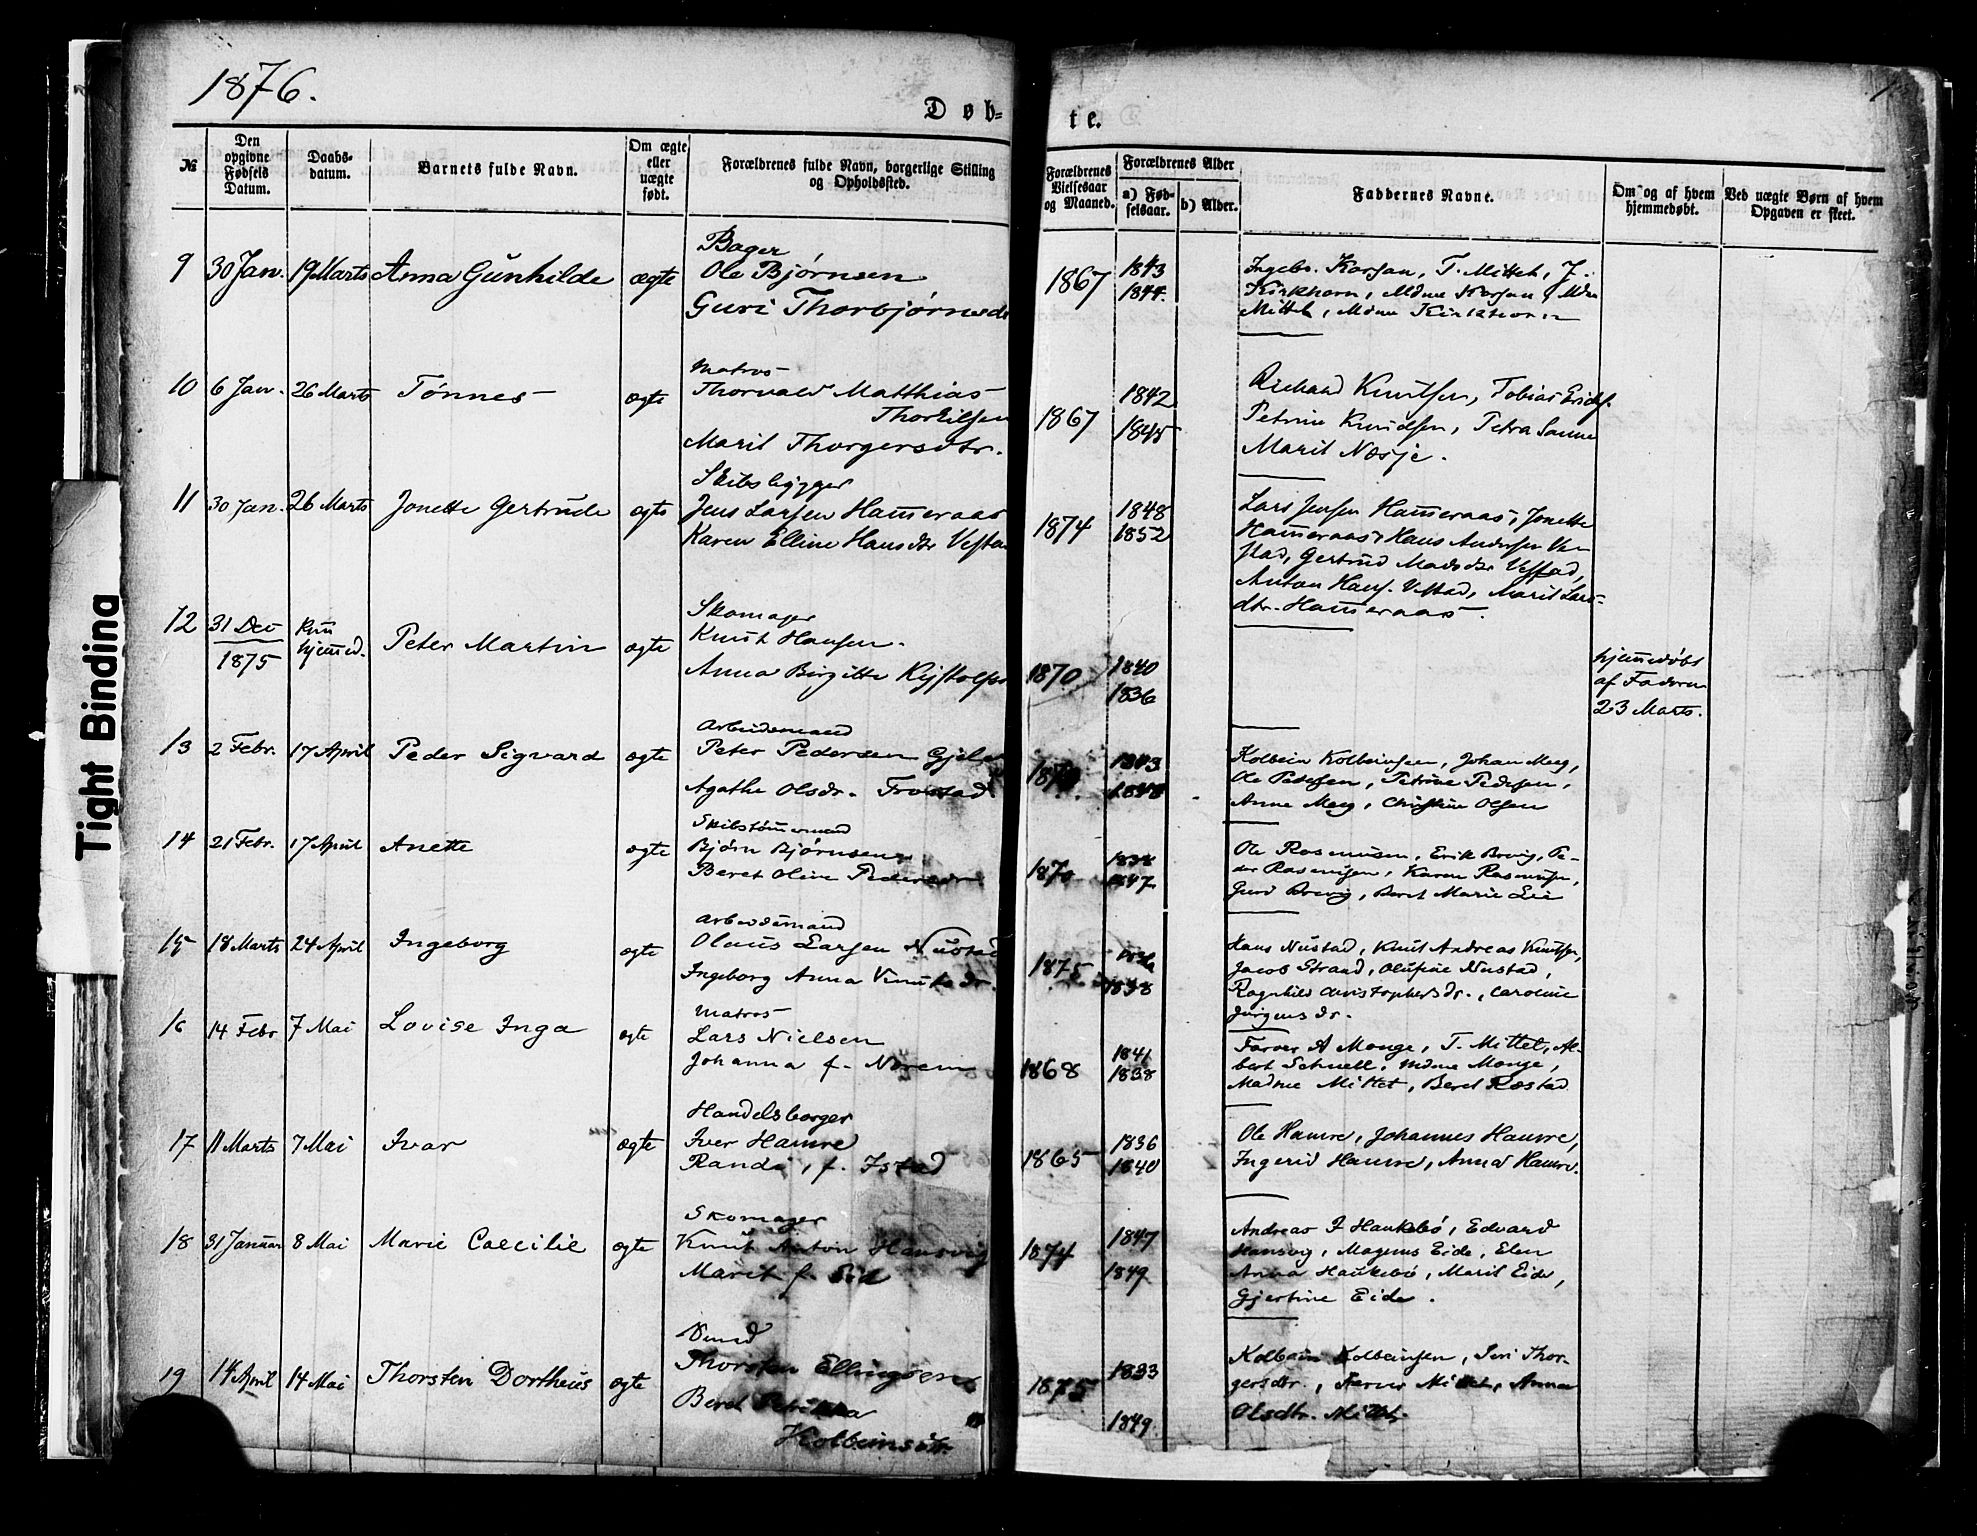 1876.
Døb-
te.
№
Den opgivne Fødsels Datum.
Daabs-datum.
Barnets fulde Navn.
Om ægte eller uægte født.
Forældrenes fulde Navn, borgerlige Stilling og Opholdssted.
Forældrenes Vielsesaar og Maaned.
Forældrenes Alder
a) Fød-selsaar.
b) Alder.
Faddernes Navne.
Om og af hvem hjemmedøbt.
Ved uægte Børn af hvem Opgaven er skeet.
9 30 Jan. 19 Marts Anna Gunhilde ægte
Bager
Ole Bjørnsen
Guri Thorbjørnsdr
1867 1843 1844.
Ingebr. Korsan, T. Mittet, J.
Kirkhorn, Mdme Korsan, Mdm
Mittet, Mdme Kirkhorn
10 6 Jan. 26 Marts Tønnes ægte
Matros
Thorvald Matthias
Thorkilsen
Marit Thorgersdtr.
1867 1842 1845
Richard Knutsen, Tobias
Petrine Knudsen, Petra
Marit Næsje.
11 30 Jan. 26 Marts Jonette Gertrude ægte
Skibsbygger
Jens Larsen Hameraas
Karen Elline Hansdtr Vestad
1874 1848 1852
Lars Jensen Hameraas, Jonette
Hameraas, Hans Andersen Ve-
stad, Gertrud Madsdtr Vestad,
Anton Hans. Vestad, Marit Lars-
dtr. Hameraas.
12 31 Dec 1875 Kun hjemmed. Peter Martin ægte
Skomager
Knut Hansen.
Anna Birgitte
1870 1840 1836
hjemmedøbt
af Faderen
23 Marts.
13 2 Febr. 17 April Peder Sigvard ægte
Arbeidsmand
Peter Pedersen
Agathe Olsdr. Frostad
1843
Kolbein Kolbeinsen, Johan Meeg,
Ole Petersen, Petrine Pedersen,
Anne Meeg, Christine Olsen
14 21 Febr. 17 April Anette ægte
Skibstømmermand
Bjørn Bjørnsen
Beret Oline Pedersdr
1870 1838 1847
Ole Rasmusen, Erik Brevig, Pe-
der Rasmusen, Karen Rasmusen,
Guri Brevig, Beret Marie Lie
15 18 Marts 24 April Ingeborg ægte
Arbeidsmand
Olaus Larsen Nustad
Ingeborg Anna Knutsdr.
1875 1838
Hans Nustad, Knut Andreas Knutsen,
Jacob Strand, Olufine Nustad,
Ragnhild Christophersdr., Caroline
Jørgensdr.
16 14 Febr 7 Mai Lovise Inga ægte
Matros
Lars Nielsen
Johanna f. Norem
1868 1841 1838
Farver A Monge, T. Mittet, Al-
bert Schnell, Mdme Monge,
Madme Mittet, Beret Røstad
17 11 Marts 7 Mai Ivar ægte
Handelsborger
Iver Hamre
Randi, f. Istad
1865 1836 1840
Ole Hamre, Johannes Hamre,
Ingerid Hamre, Anna Hamre.
18 31 Januar 8 Mai Marie Caecilie ægte
Skomager
Knut Anton Hansvig
Marit f. Eid
1874 1847 1849
Andreas J Haukebø, Edvard
Hansvig, Magnus Eide, Elen
Anna Haukebø, Marit Eide,
Gjertine Eide.
19 14 April 14 Mai Thorsten Dortheus ægte
Smed
Thorsten Ellingsen
Beret Petrikka
Kolbeinsdtr.
1875 1833 1849.
Kolbein Kolbeinsen, Siri Thor-
gersdtr., Farver Mittet, Anna
Olsdtr. Mittet.
Tight Binding